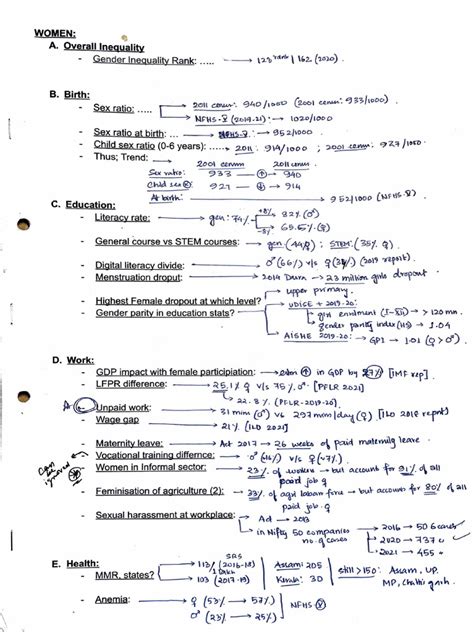 WOMEN:
A. Overall Inequality
- Gender Inequality Rank: ..... → 123 rank | 162 (2020).
B. Birth:
- Sex ratio: ..... → 2011 census: 940/1000 (2001 census: 933/1000)
→ NFHS-V (2019-21): → 1020/1000
- Sex ratio at birth: ... → NFHS-V: → 952/1000
- Child sex ratio (0-6 years): ..... → 2011: 914/1000; 2001 census: 927/1000
- Thus; Trend: → 2001 census 2011 census
Sex ratio: 933 → ↑ → 940
Child sex R: 927 → ↓ → 914
At birth: → 952/1000 (NFHS-V)
C. Education:
- Literacy rate: → gen: 74% +8% 82% (♂)
-5% 65.5% (♀)
- General course vs STEM courses: → gen (44♀); STEM: (35% ♀)
- Digital literacy divide: → ♂ (66%) v/s ♀ (33%) (2019 report)
- Menstruation droput: → 2014 Dasra → 23 million girls dropout
- Highest Female dropout at which level? → upper primary.
- Gender parity in education stats? → UDISE + 2019-20:
→ girl enrolment (I-XII) → 120 mn.
→ gender parity index (HS) → 1.04
→ AISHE 2019-20: → GPI → 1.01 (♀ > ♂)
D. Work:
- GDP impact with female participiation: → ↑ in GDP by 27% [IMF rep]
- LFPR difference: → 25.1% ♀ v/s 75% ♂. [PFLR 2021]
→ 22.8% (PFLR-2019-20)
- Unpaid work: → 31 mins (♂) vs 297 min/day (♀) [ILO 2018 report]
- Wage gap → 21% [ILO 2021]
- Maternity leave: → Act 2017 → 26 weeks of paid maternity leave
- Vocational training differnce: → ♂ (16%) v/s ♀ (~7%)
Can be ignored
- Women in Informal sector: → 23% of workers → but account for 91% of all paid job ♀
- Feminisation of agriculture (2): → 33% of agri labour force → but account for 80% of all paid job ♀
- Sexual harassment at workplace: → Act → 2013
→ in Nifty 50 companies no. of cases → 2016 → 50 6 cases
→ 2020 → 737
→ 2021 → 455
E. Health:
- MMR, states? → SRS 113/1 lakh (2016-18)
→ 103 (2017-19)
Assam: 205
Kerala: 30
still >150: Assam, UP, MP, Chhattisgarh
- Anemia: → ♀ (53% → 57%)
→ ♂ (23% → 25%)
NFHS V